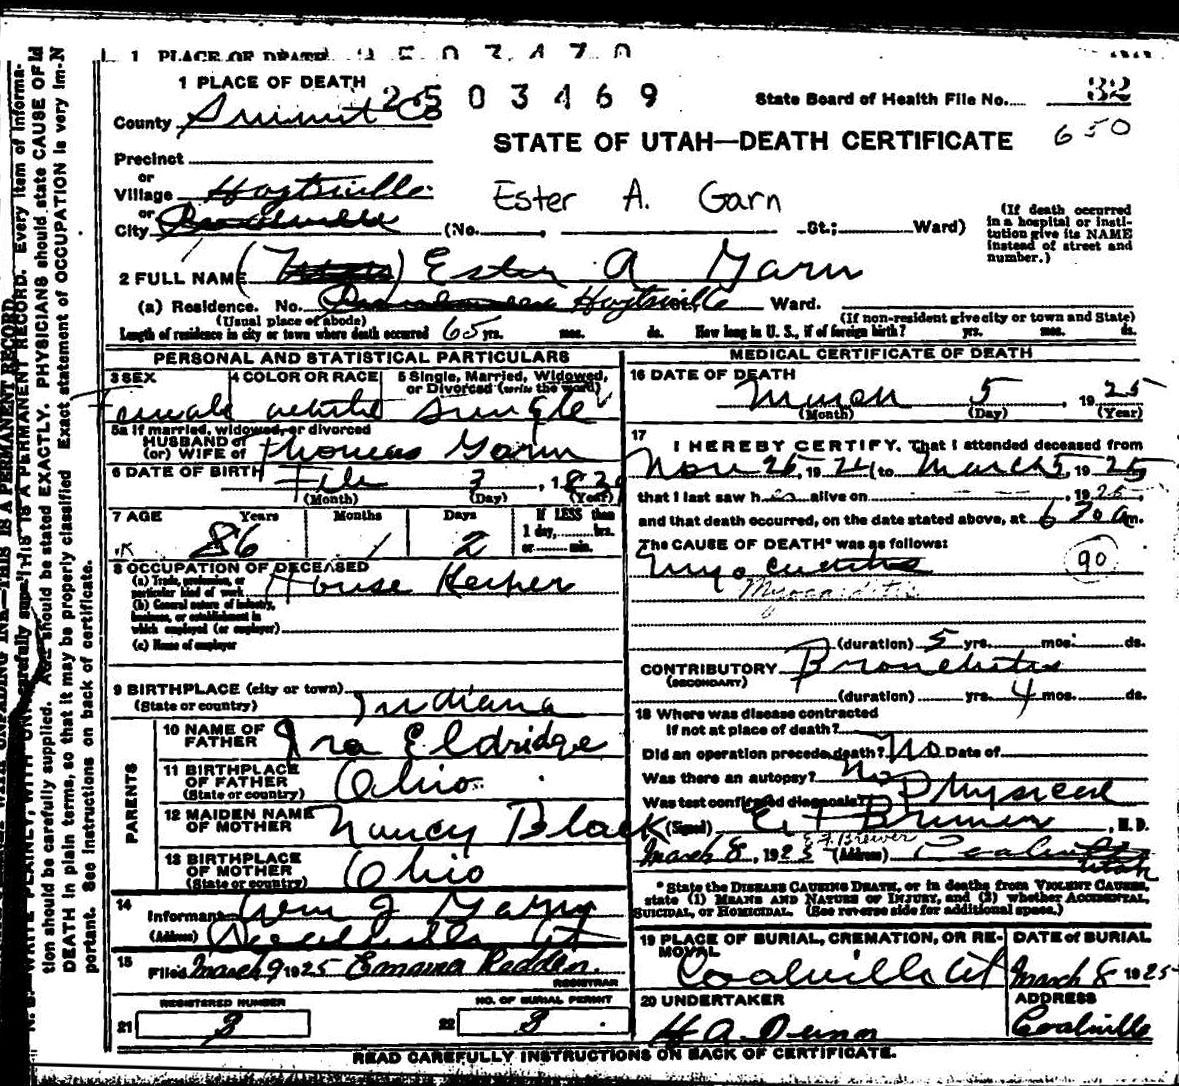 1 PLACE OF DEATH
1 PLACE OF DEATH
2503469
State Board of Health File No. 32
County Summit Co
STATE OF UTAH—DEATH CERTIFICATE 650
Precinct
or
Village Hoytsville
Ester A. Garn
or
City (No. , St.; Ward)
(If death occurred in a hospital or institution give its NAME instead of street and number.)
2 FULL NAME Ester A Garn
(a) Residence. No. Hoytsville Ward.
(Usual place of abode) (If non-resident give city or town and State)
Length of residence in city or town where death occurred 65 yrs. mos. ds. How long in U. S., if of foreign birth? yrs. mos. ds.
PERSONAL AND STATISTICAL PARTICULARS
3 SEX 4 COLOR OR RACE 5 Single, Married, Widowed, or Divorced (write the word)
Female white Single
5a If married, widowed, or divorced
HUSBAND of
(or) WIFE of Thomas Garn
6 DATE OF BIRTH Feb 3, 183
(Month) (Day) (Year)
7 AGE Years Months Days If LESS than 1 day, hrs. or min.
86 1 2
8 OCCUPATION OF DECEASED
(a) Trade, profession, or particular kind of work House Keeper
(b) General nature of industry, business, or establishment in which employed (or employer)
(c) Name of employer
9 BIRTHPLACE (city or town)
(State or country) Indiana
PARENTS
10 NAME OF FATHER Ira Eldridge
11 BIRTHPLACE OF FATHER (State or country) Ohio
12 MAIDEN NAME OF MOTHER Nancy Black
13 BIRTHPLACE OF MOTHER (State or country) Ohio
14 Informant Wm J Garn
(Address) Ut
15 Filed March 9 1925 Emma Redden
REGISTRAR
REGISTERED NUMBER NO. OF BURIAL PERMIT
21 3 22 3
MEDICAL CERTIFICATE OF DEATH
16 DATE OF DEATH
March 5, 1925
(Month) (Day) (Year)
17 I HEREBY CERTIFY, That I attended deceased from
Nov 26, 1924 to March 5, 1925
that I last saw h alive on , 1925,
and that death occurred, on the date stated above, at 6 30 a m.
The CAUSE OF DEATH* was as follows:
Myocarditis 90
Myocarditis
(duration) 5 yrs. mos. ds.
CONTRIBUTORY Bronchitis
(SECONDARY)
(duration) yrs. 4 mos. ds.
18 Where was disease contracted
if not at place of death?
Did an operation precede death? No Date of
Was there an autopsy? No
Was test confirmed diagnosis? Physical
(Signed) , M.D.
E.F. Brewer
March 8, 1925 (Address) Coalville Utah
*State the DISEASE CAUSING DEATH, or in deaths from VIOLENT CAUSES,
state (1) MEANS AND NATURE OF INJURY, and (2) whether ACCIDENTAL,
SUICIDAL, OR HOMICIDAL. (See reverse side for additional space.)
19 PLACE OF BURIAL, CREMATION, OR REMOVAL DATE of BURIAL
Coalville Ut March 8 1925
20 UNDERTAKER ADDRESS
Coalville
READ CAREFULLY INSTRUCTIONS ON BACK OF CERTIFICATE.